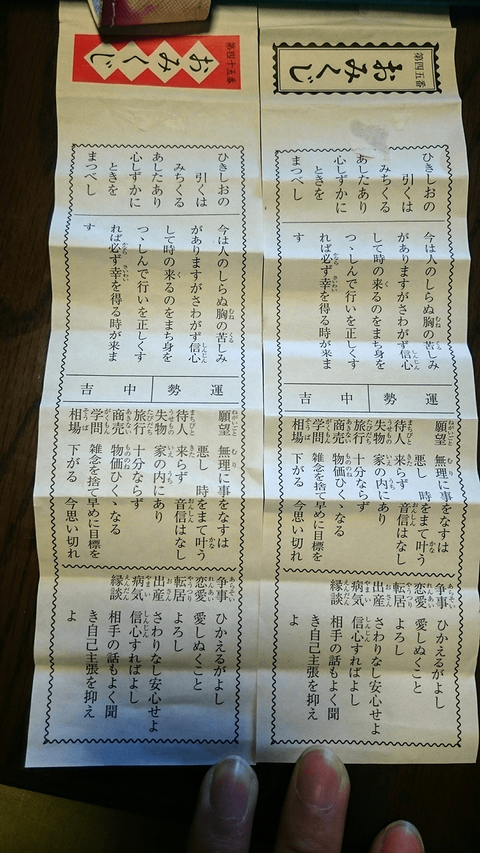 第四五番
おみくじ
ひきしおの
引くは
みちくる
あしたあり
心しずかに
ときを
まつべし
今は人のしらぬ胸の苦しみ
がありますがさわがず信心
して時の来るのをまち身を
つゝしんで行いを正しくす
れば必ず幸を得る時が来ま
す
運勢 中吉
願望 無理に事をなすは
悪し 時をまて叶う
待人 来らず 音信はなし
失物 家の内にあり
旅行 十分ならず
商売 物価ひくゝなる
学問 雑念を捨て早めに目標を
相場 下がる 今思い切れ
争事 ひかえるがよし
恋愛 愛しぬくこと
転居 よろし
出産 さわりなし安心せよ
病気 信心すればよし
縁談 相手の話もよく聞
き自己主張を抑え
よ
第四十五番
おみくじ
ひきしおの
引くは
みちくる
あしたあり
心しずかに
ときを
まつべし
今は人のしらぬ胸の苦しみ
がありますがさわがず信心
して時の来るのをまち身を
つゝしんで行いを正しくす
れば必ず幸を得る時が来ま
す
運勢 中吉
願望 無理に事をなすは
悪し 時をまて叶う
待人 来らず 音信はなし
失物 家の内にあり
旅行 十分ならず
商売 物価ひくゝなる
学問 雑念を捨て早めに目標を
相場 下がる 今思い切れ
争事 ひかえるがよし
恋愛 愛しぬくこと
転居 よろし
出産 さわりなし安心せよ
病気 信心すればよし
縁談 相手の話もよく聞
き自己主張を抑え
よ